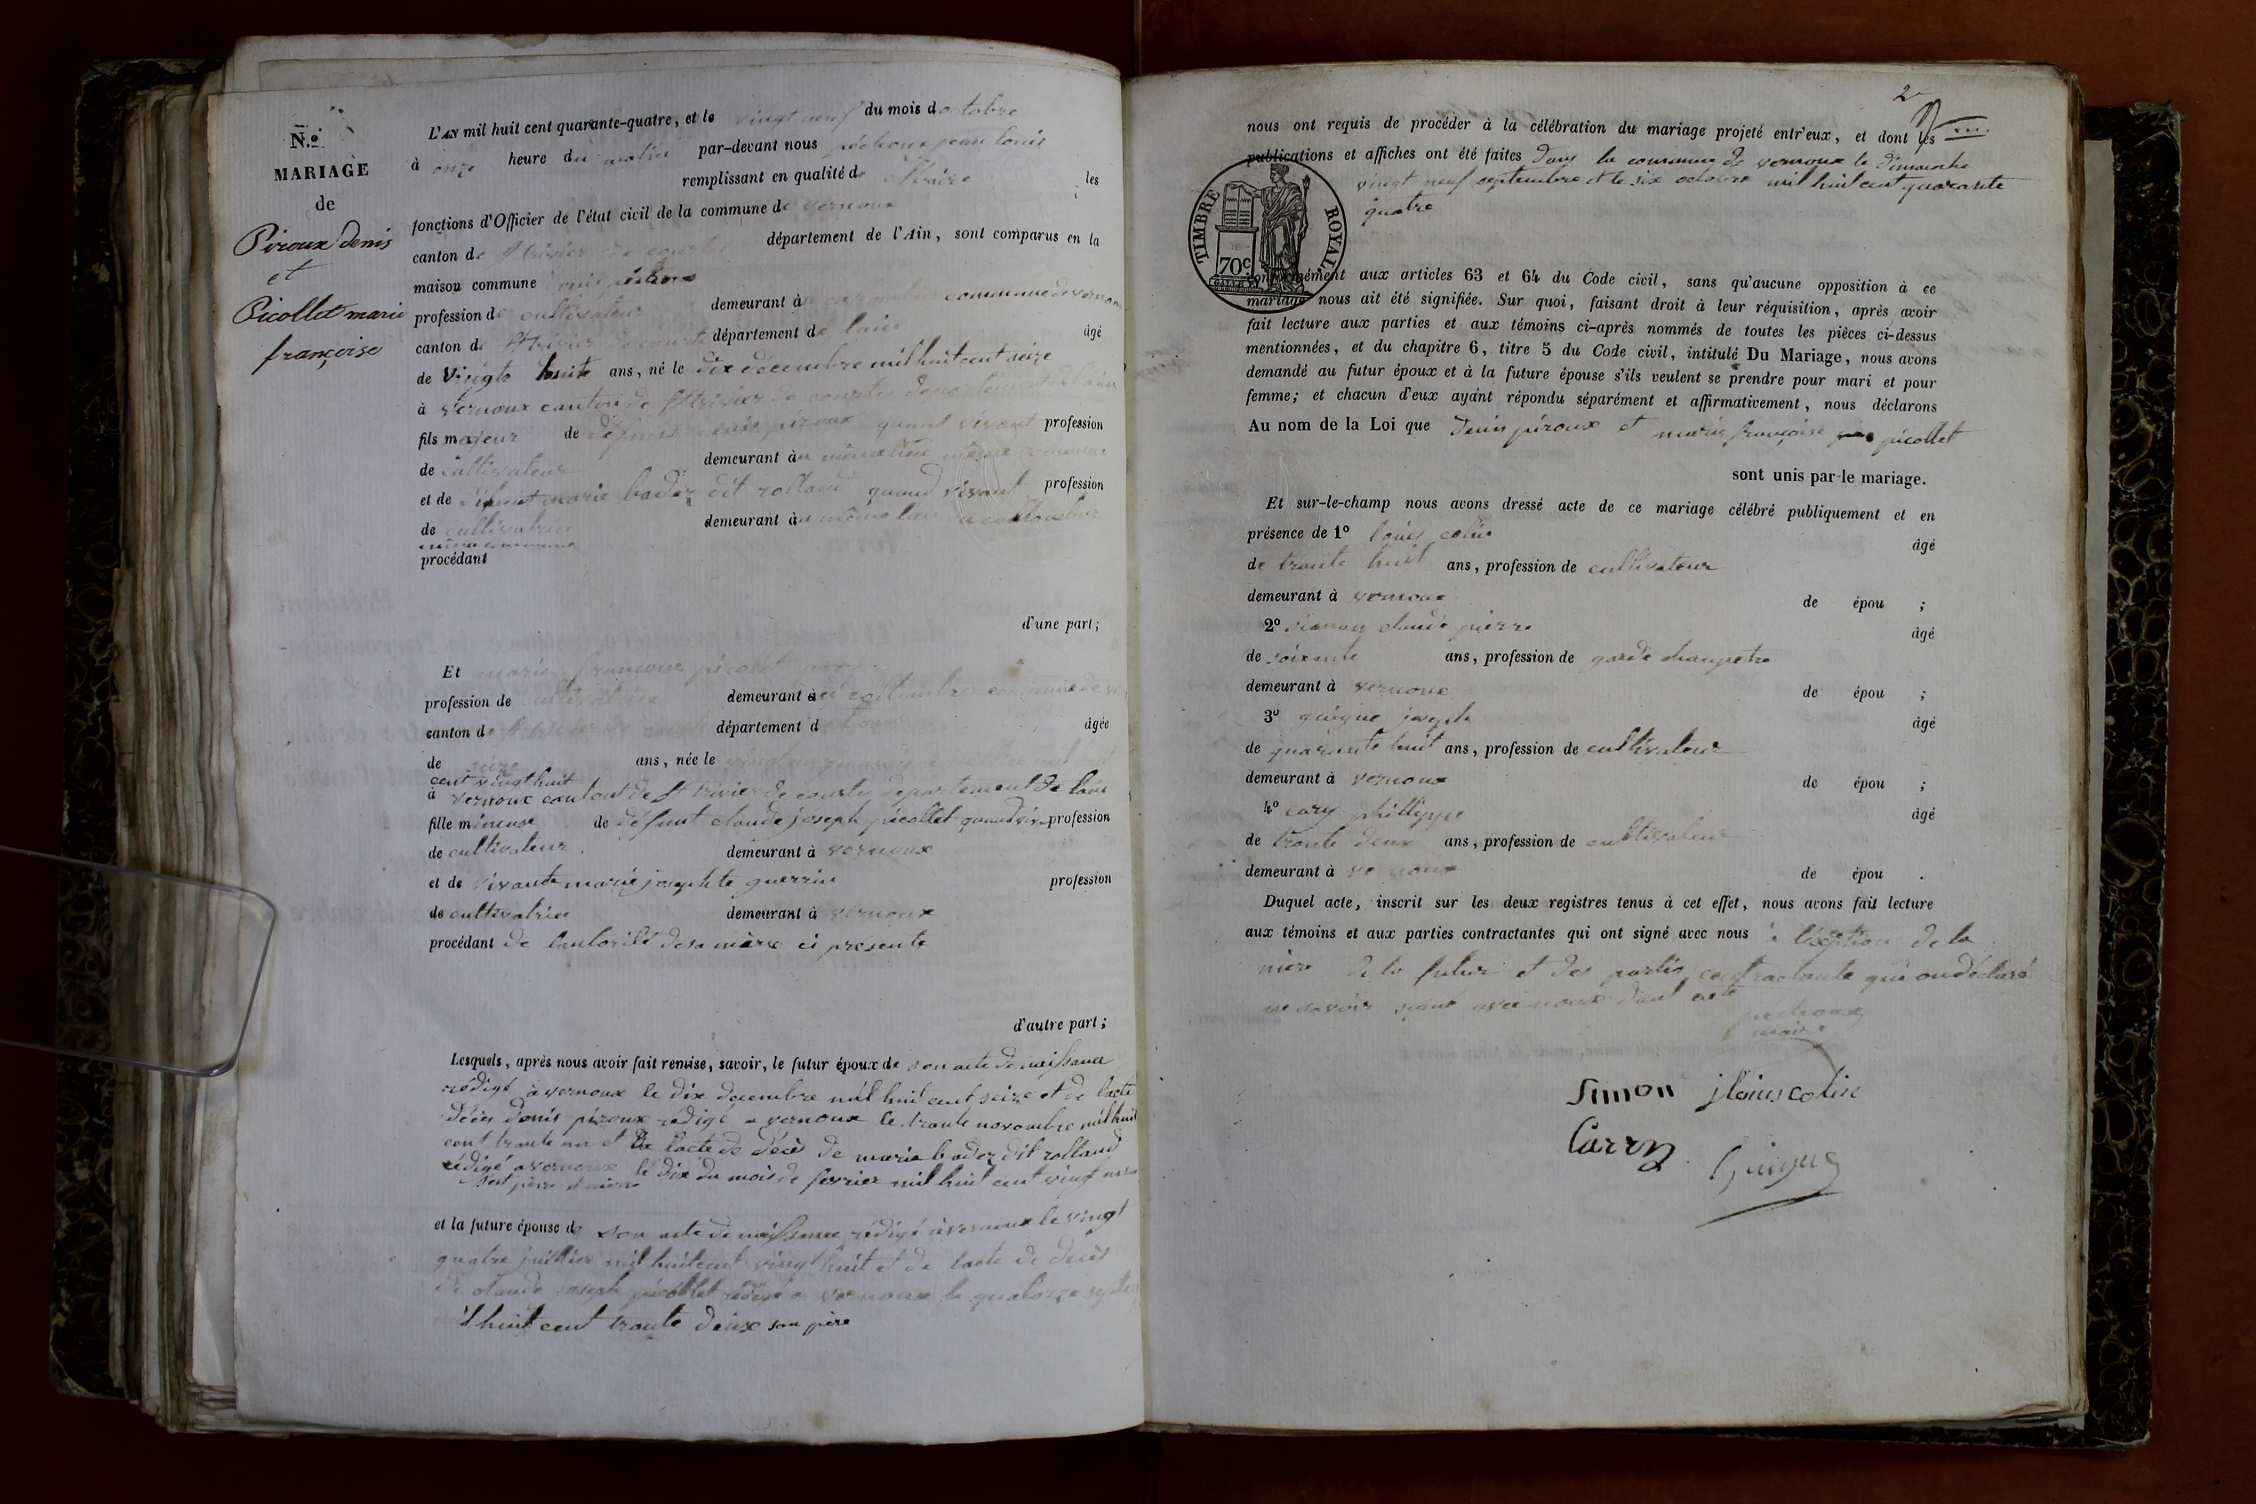 N.º
MARIAGE
de
Piroux denis
et
Picollet marie
françoise
L'AN mil huit cent quarante-quatre, et le vingt neuf du mois doctobre
à onze heure du matin par-devant nous péchoux jean louis
remplissant en qualité de Maire les
fonctions d'Officier de l'état civil de la commune de vernoux
canton de St trivier de courtes département de l'Ain, sont comparus en la
maison commune denis piroux
profession de cultivateur demeurant à commune de vernoux
canton de St trivier de courte département de lain âgé
de vingte huite ans, né le dix décembre mil huit cent seize
à vernoux canton de St trivier de courtes departement de lain
fils majeur de défunt denis piroux quant vivant profession
de cultivateur demeurant au même lieu même commune
et de défunt marie badez dit rolland quand vivant profession
de cultivatrice demeurant au même lieu
même commune
procédant
d'une part;
Et marie françoise picollet
profession de cultivatrice demeurant à commune de
canton de St trivier de courte département d âgée
de seize ans, née le vingt
cent vingt huit
à vernoux cantont de St trivier de courtes departement de lain
fille mineuse de défunt claude joseph picollet quand viv profession
de cultivateur demeurant à vernoux
et de vivante marie josephte guerrin profession
de cultivatrice demeurant à vernoux
procédant de lautorité de sa mère ci présente
d'autre part;
Lesquels, après nous avoir fait remise, savoir, le futur époux de son acte de naissance
rédigé à vernoux le dix decembre mil huit cent seize et de lacte
décès denis piroux rédigé a vernoux le trante novembre mil huit
cent trante un et de lacte de décès de marie badez dit rolland
rédigé a vernoux le dix du mois de fevrier mil huit cent vingt
sest père et mère
et la future épouse de son acte de naissance rédigé à vernoux le vingt
quatre juillier mil huit cent vingt huit et de lacte de décès
de claude joseph picollet rédigé a vernoux le quatorze septem
mil huit cent trante deux son père
2
nous ont requis de procéder à la célébration du mariage projeté entr'eux, et dont les
publications et affiches ont été faites dans la commune de vernoux le dimanche
vingt neuf septembre et le six octobre mil huit cent quarante
quatre
TIMBRE ROYAL
70c
conformément aux articles 63 et 64 du Code civil, sans qu'aucune opposition à ce
mariage nous ait été signifiée. Sur quoi, faisant droit à leur réquisition, après avoir
fait lecture aux parties et aux témoins ci-après nommés de toutes les pièces ci-dessus
mentionnées, et du chapitre 6, titre 5 du Code civil, intitulé Du Mariage, nous avons
demandé au futur époux et à la future épouse s'ils veulent se prendre pour mari et pour
femme; et chacun d'eux ayant répondu séparément et affirmativement, nous déclarons
Au nom de la Loi que denis piroux et marie françoise picollet
sont unis par le mariage.
Et sur-le-champ nous avons dressé acte de ce mariage célébré publiquement et en
présence de 1º louis colin âgé
de trante huit ans, profession de cultivateur
demeurant à vernoux de épou ;
2º simon claude pierre âgé
de soixante ans, profession de garde champetre
demeurant à vernoux de épou ;
3º guigue joseph âgé
de quarante huit ans, profession de cultivateur
demeurant à vernoux de épou ;
4º cary phillippe âgé
de trante deux ans, profession de cultivateur
demeurant à vernoux de épou .
Duquel acte, inscrit sur les deux registres tenus à cet effet, nous avons fait lecture
aux témoins et aux parties contractantes qui ont signé avec nous a léxeption de la
mère de la futur et des partis contractante qui ondéclaré
ne savoir signé avec nous dont acte
pechoux
maire
Simon jlouis colin
Carry Guigue